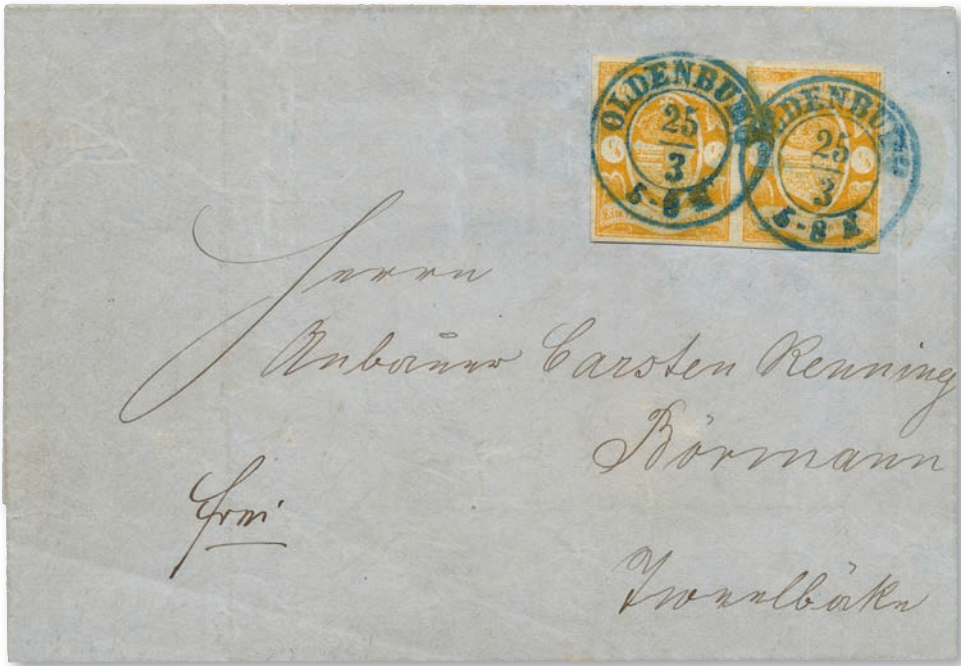 OLDENBURG
25
3
5-8 N
OLDENBURG
25
3
5-8 N
Herrn
Anbauer Carsten Renning
Börmann
frei
Tweelbäke